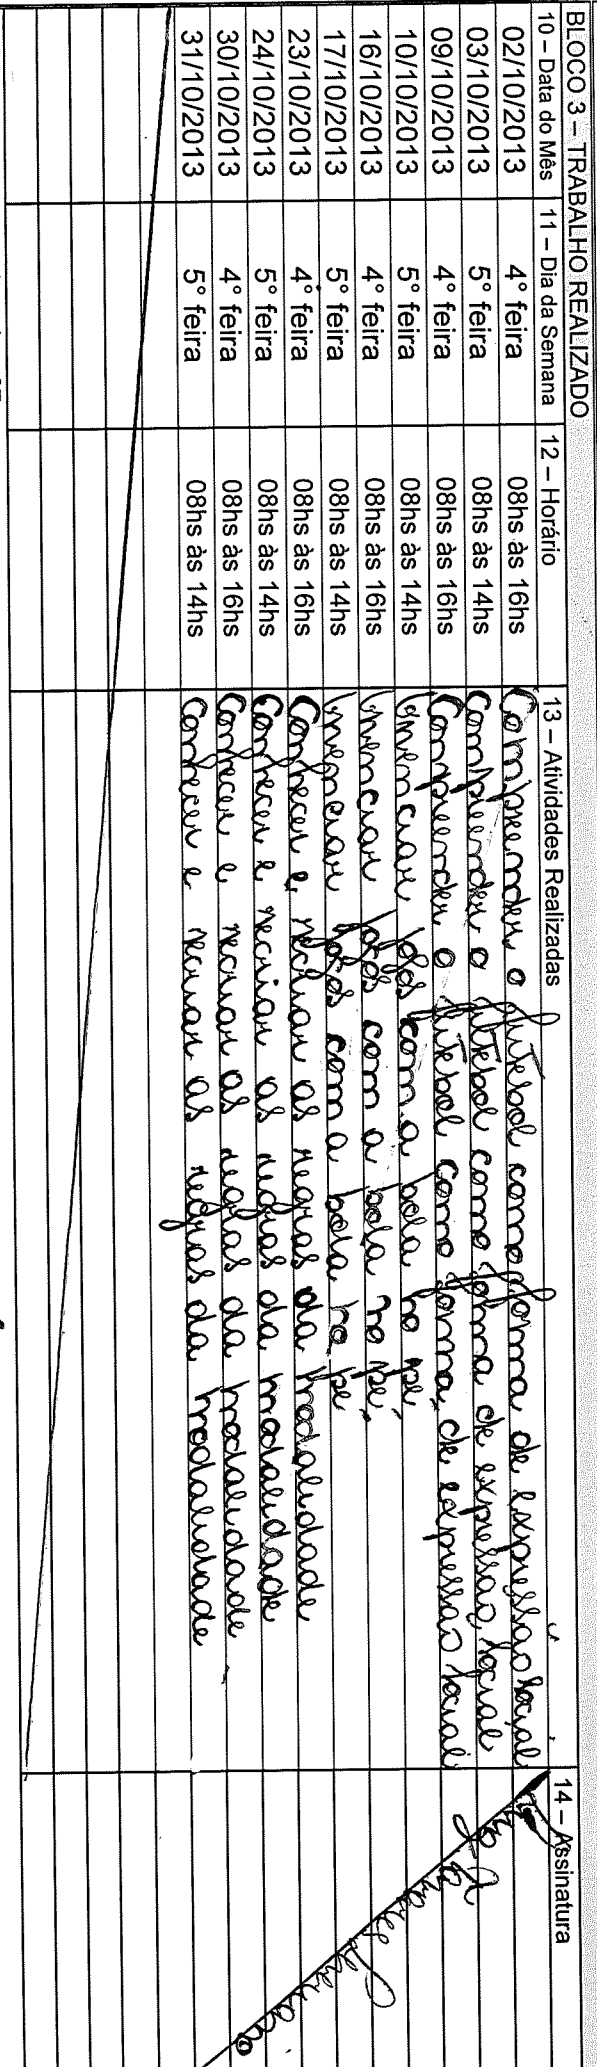 BLOCO 3 – TRABALHO REALIZADO
10 – Data do Mês 11 – Dia da Semana 12 – Horário 13 – Atividades Realizadas 14 – Assinatura
02/10/2013 4° feira 08hs às 16hs Compreender o futebol como forma de expressão social
03/10/2013 5° feira 08hs às 14hs Compreender o futebol como forma de expressão social
09/10/2013 4° feira 08hs às 16hs Compreender o futebol como forma de expressão social
10/10/2013 5° feira 08hs às 14hs Vivenciar jogos com a bola no pé
16/10/2013 4° feira 08hs às 16hs Vivenciar jogos com a bola no pé
17/10/2013 5° feira 08hs às 14hs Vivenciar jogos com a bola no pé
23/10/2013 4° feira 08hs às 16hs Conhecer e recriar as regras da modalidade
24/10/2013 5° feira 08hs às 14hs Conhecer e recriar as regras da modalidade
30/10/2013 4° feira 08hs às 16hs Conhecer e recriar as regras da modalidade
31/10/2013 5° feira 08hs às 14hs Conhecer e recriar as regras da modalidade